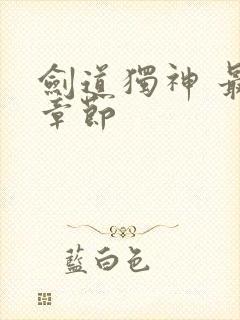 劍道獨神 最
章節
藍白色